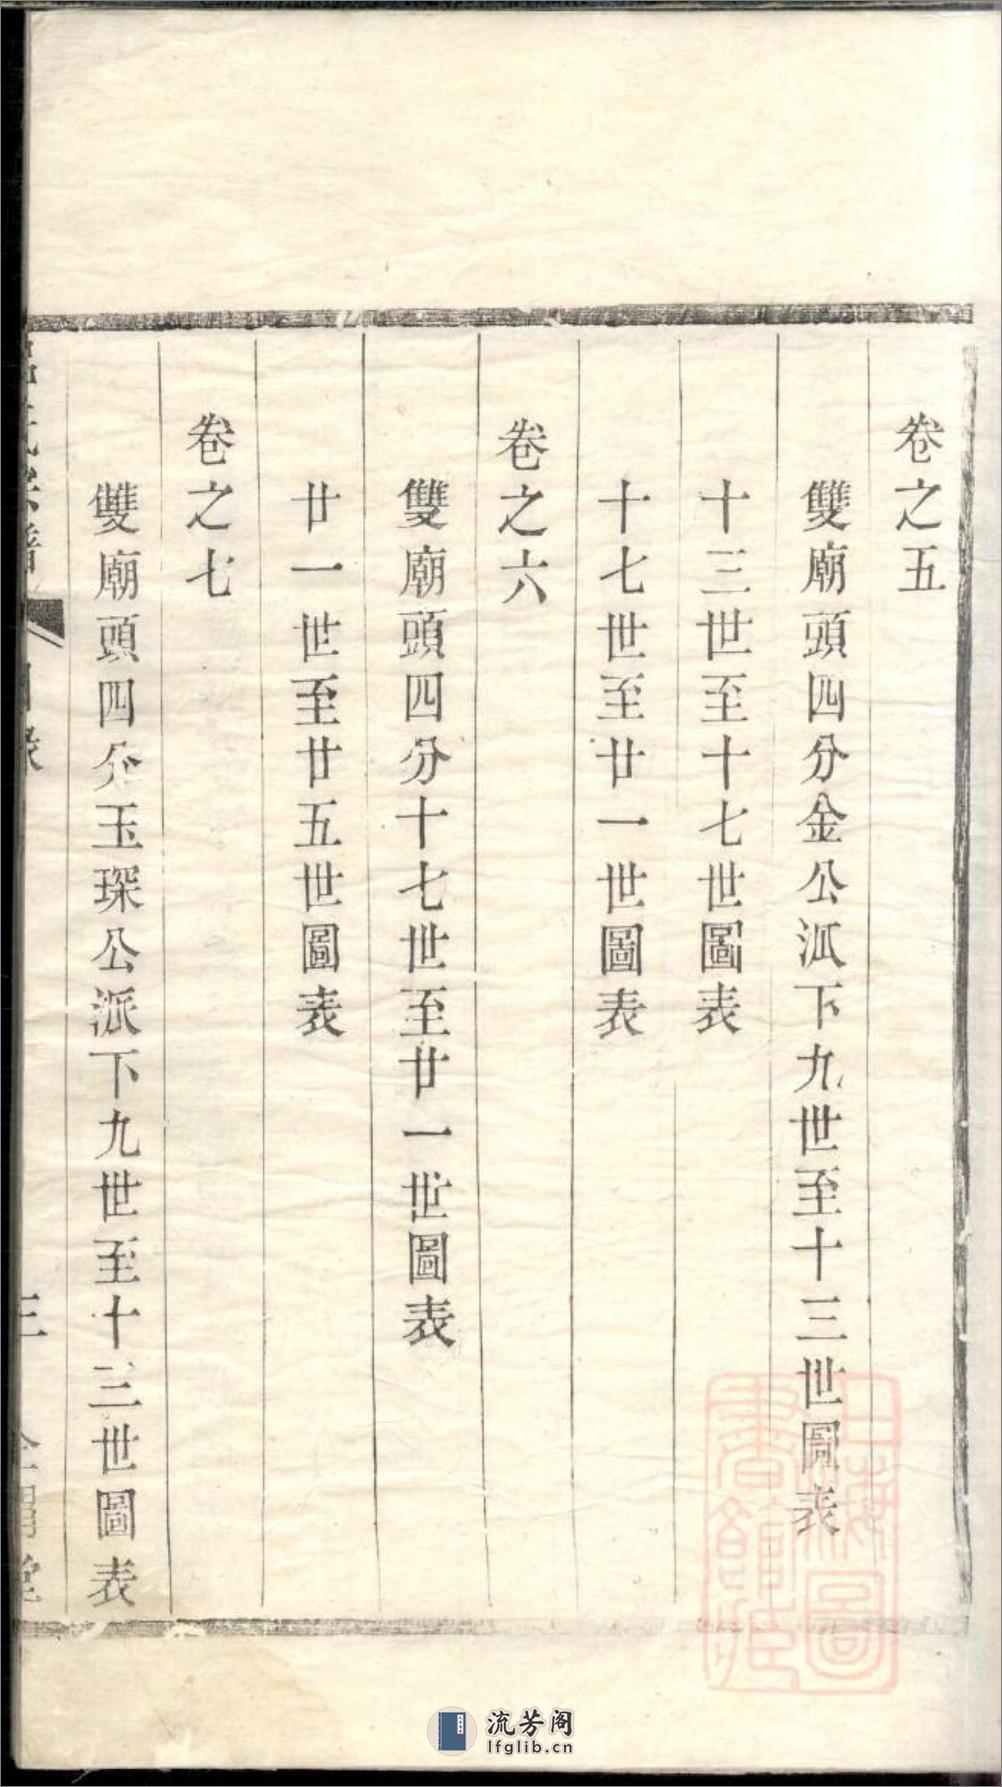 卷之五
雙廟頭四分金公派下九世至十三世圖表
十三世至十七世圖表
十七世至廿一世圖表
卷之六
雙廟頭四分十七世至廿一世圖表
廿一世至廿五世圖表
卷之七
雙廟頭四分玉琛公派下九世至十三世圖表
三
堂
上海圖
書館藏
流芳阁
lfglib.cn